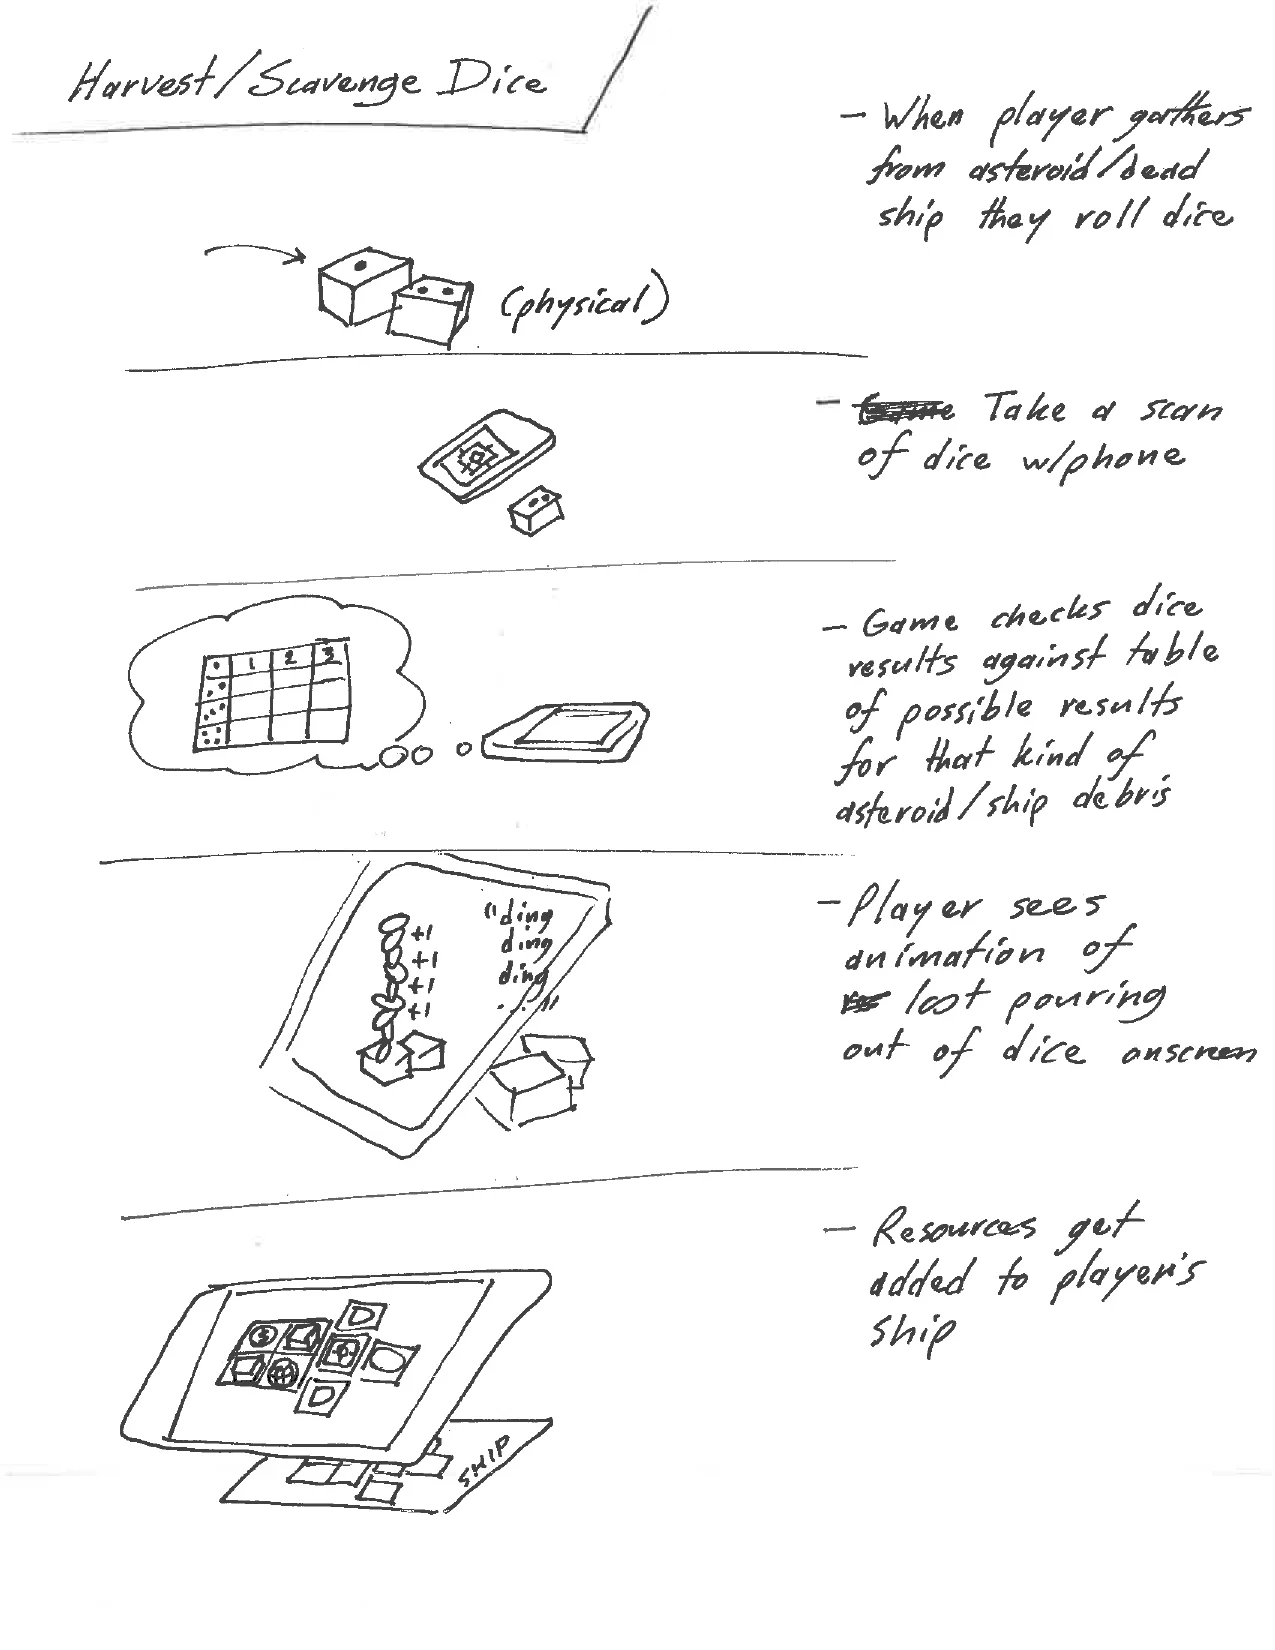 Harvest/Scavenge Dice
- When player gathers
from asteroid/dead
ship they roll dice
(physical)
- Take a scan
of dice w/phone
1 2 3
- Game checks dice
results against table
of possible results
for that kind of
asteroid/ship debris
+1
+1
+1
+1
"ding
ding
ding
..."
- Player sees
animation of
loot pouring
out of dice onscreen
- Resources get
added to player's
ship
$
D
D
SHIP